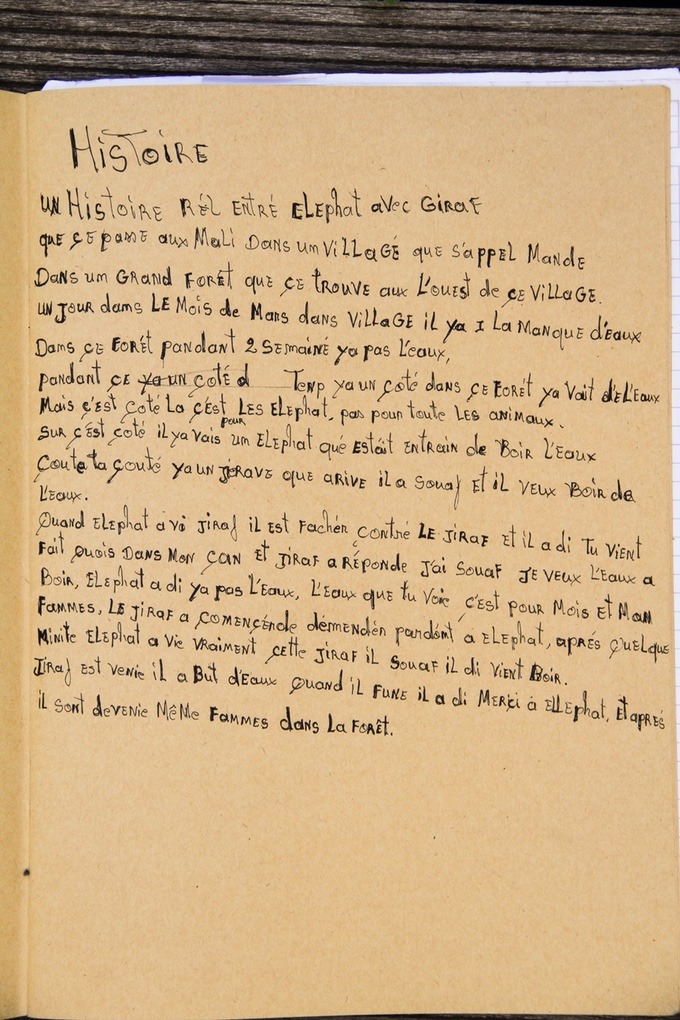 HISTOIRE
UN HiStoiRE RéL ENTRé ELephat avec GiRaf
que çe passe aux MaLi DanS um ViLLaGé que S'appel Mande
DanS um GRaND FoRét que çe tRouve aux L'ouest de çe ViLLaGE.
UN JouR dams LE Mois de MaRs dans ViLLaGE il ya I La Manque d'Eaux
Dams çe FoRét pandant 2 Semainé ya pas L'eaux,
pandant çe ya un coté d Temp ya un çoté dans çe FoRét ya Vait dE L'Eaux
Mais c'est Coté La çést pour LES ELephat, pas poun toute LES animaux.
SuR çést coté il ya Vais um ELephat qué Estait ENtRain de BoiR L'Eaux
Coute ta çouté ya un jéRave que aRive il a Souaf Et iL VEux BoiR de
L'Eaux.
Quand ELephat a vi JiRaf iL EST FaChén Contné LE JiRaF Et iL a di Tu ViENT
Fait Quois Dans Mon Çan Et JiRaF a Réponde J'ai Souaf JE VEUX L'Eaux a
BoiR, ELephat a di ya pas L'Eaux, L'Eaux que tu Voie C'est pouR Mois Et Man
Fammes, LE JiRaF a çomençénde démmendén pandént à ELephat, aprés Quelque
MiNite ELephat a Vie VRaiment Cette JiRaf iL Souaf iL di VienT BoiR.
JiRaf est Venie iL a But d'eaux Quand iL FUNE iL a di MeRçi à ELLephat, Et apRés
iL Sont devenie MêMe FaMMes dans La FoRét.